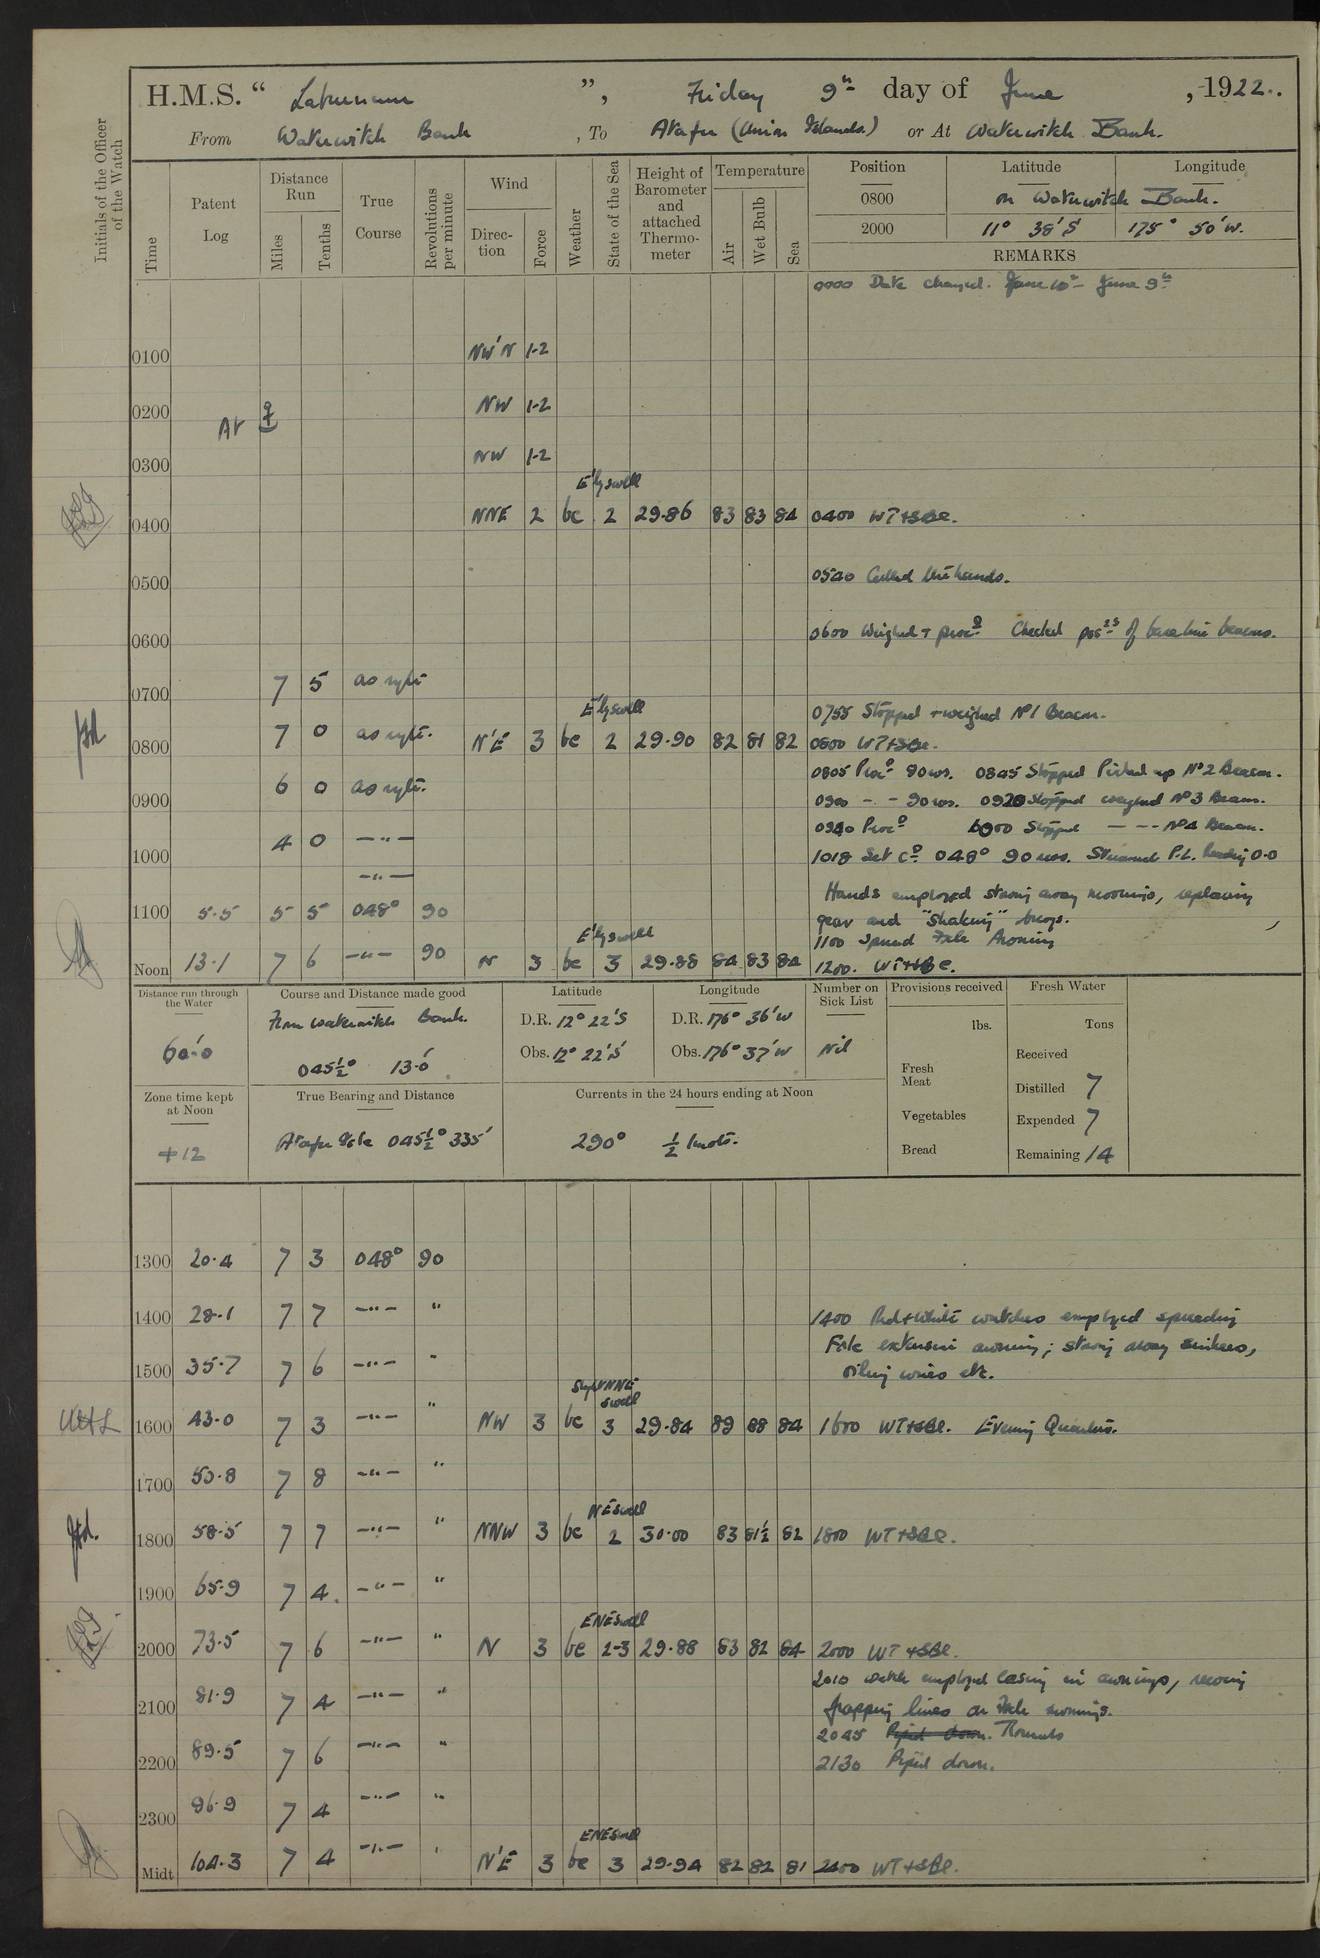 H.M.S. “ Laburnum ”, Friday 9th day of June, 1922.
From Waterwitch Bank, To Atafu (Union Islands.) or At Waterwitch Bank.
Initials of the Officer of the Watch
Time
Patent Log
Distance Run
Miles
Tenths
True Course
Revolutions per minute
Wind
Direction
Force
Weather
State of the Sea
Height of Barometer and attached Thermometer
Temperature
Air
Wet Bulb
Sea
Position Latitude Longitude
0800 on Waterwitch Bank.
2000 11° 38'S 175° 50'W.
REMARKS
0000 Date changed. June 10th - June 9th
0100 NW'N 1-2
0200 At NW 1-2
0300 NW 1-2
E'ly swell
0400 NNE 2 bc 2 29.86 83 83 84 0400 WT+SBe.
0500 0520 Called the hands.
0600 0600 Weighed + procd Checked posns of base line beacons.
0700 7 5 as reqte
E'ly swell
0755 Stopped + weighed No 1 Beacon.
0800 7 0 as reqte. N'E 3 bc 2 29.90 82 81 82 0800 WT+SBe.
0805 Procd 90 revs. 0845 Stopped Picked up No 2 Beacon.
0900 6 0 as reqte. 0900 - - 90 revs. 0920 Stopped weighed No 3 Beacon.
0940 Procd 1000 Stopped - - - No 4 Beacon.
1000 4 0 -"- 1018 Set Co 048° 90 revs. Streamed P.L. Reading 0.0
-"-
Hands employed stowing away moorings, replacing
1100 5.5 5 5 048° 90 gear and "Shaking" buoys.
1100 Spread Fxle Awning
E'ly swell
Noon 13.1 7 6 -"- 90 N 3 bc 3 29.88 84 83 84 1200. WT+SBe.
Distance run through the Water
60'.0
Course and Distance made good
From Waterwitch Bank.
045½° 13'.0
Latitude
D.R. 12° 22'S
Obs. 12° 22'S
Longitude
D.R. 176° 36'W
Obs. 176° 37'W
Number on Sick List
Nil
Provisions received
lbs.
Fresh Meat
Vegetables
Bread
Fresh Water
Tons
Received
Distilled 7
Expended 7
Remaining 14
Zone time kept at Noon
+12
True Bearing and Distance
Atafu Isle 045½° 335'
Currents in the 24 hours ending at Noon
290° ½ knots.
1300 20.4 7 3 048° 90
1400 28.1 7 7 -"- " 1400 Red+White watches employed spreading
Fxle extension awning; stowing away sinkers,
1500 35.7 7 6 -"- " oiling wires etc.
NNE swell
1600 43.0 7 3 -"- " NW 3 bc 3 29.84 89 88 84 1600 WT+SBe. Evening Quarters.
1700 50.8 7 8 -"- "
NE swell
1800 58.5 7 7 -"- " NNW 3 bc 2 30.00 83 81½ 82 1800 WT+SBe.
1900 65.9 7 4 -"- "
ENE swell
2000 73.5 7 6 -"- " N 3 bc 2-3 29.88 83 82 84 2000 WT+SBe.
2010 watch employed lacing in awnings, reeving
2100 81.9 7 4 -"- " frapping lines on Fxle awnings.
2045 Piped down. Rounds
2200 89.5 7 6 -"- " 2130 Piped down.
2300 96.9 7 4 -"- "
ENE swell
Midt 104.3 7 4 -"- " N'E 3 bc 3 29.94 82 82 81 2400 WT+SBe.